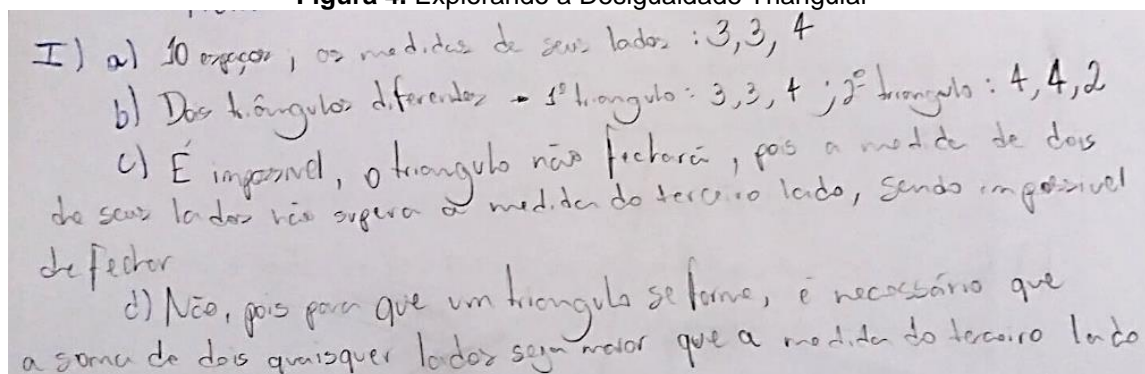 Figura 4. Explorando a Desigualdade Triangular
I) a) 10 espaços, as medidas de seus lados: 3, 3, 4
b) Dois triângulos diferentes → 1º triangulo: 3, 3, 4; 2º triangulo: 4, 4, 2
c) É impossivel, o triangulo não fechará, pois a medida de dois
de seus lados não supera a medida do terceiro lado, sendo impossivel
de fechar
d) Não, pois para que um triangulo se forme, é necessário que
a soma de dois quaisquer lados seja maior que a medida do terceiro lado